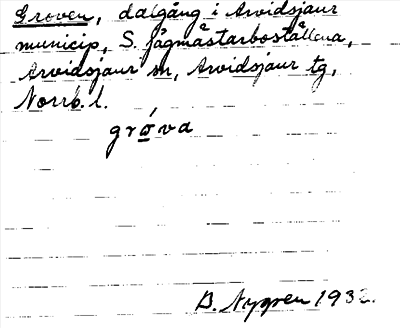 Groven, dalgång i Arvidsjaur
municip, S. jägmästarboställena,
Arvidsjaur sn, Arvidsjaur tg,
Norrb. l.
gró̲va
B. Nygren 1932.